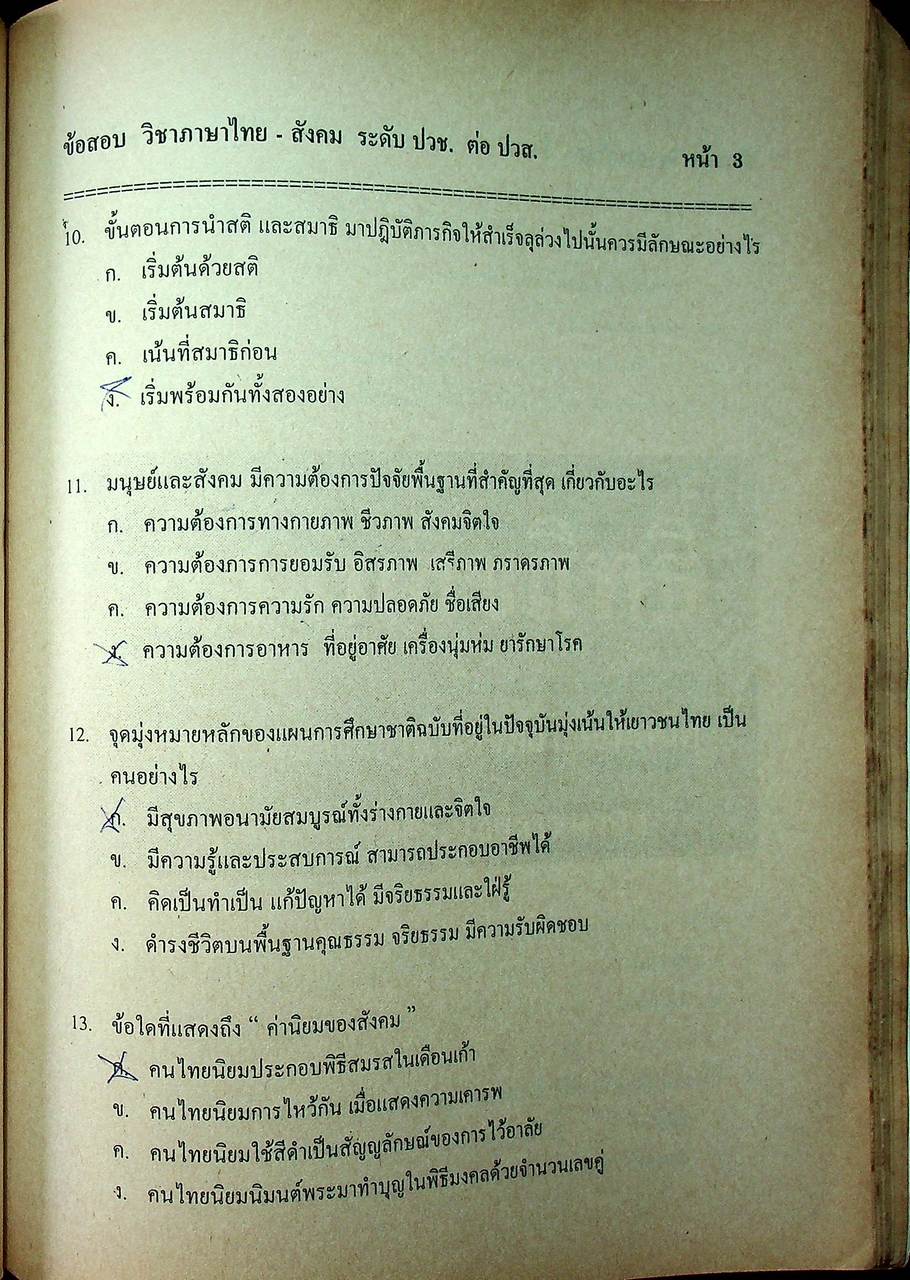 ข้อสอบ วิชาภาษาไทย - สังคม ระดับ ปวช. ต่อ ปวส.
หน้า 3
10. ขั้นตอนการนำสติ และสมาธิ มาปฏิบัติภารกิจให้สำเร็จลุล่วงไปนั้นควรมีลักษณะอย่างไร
ก. เริ่มต้นด้วยสติ
ข. เริ่มต้นสมาธิ
ค. เน้นที่สมาธิก่อน
ง. เริ่มพร้อมกันทั้งสองอย่าง
11. มนุษย์และสังคม มีความต้องการปัจจัยพื้นฐานที่สำคัญที่สุด เกี่ยวกับอะไร
ก. ความต้องการทางกายภาพ ชีวภาพ สังคมจิตใจ
ข. ความต้องการการยอมรับ อิสรภาพ เสรีภาพ ภราดรภาพ
ค. ความต้องการความรัก ความปลอดภัย ชื่อเสียง
ง. ความต้องการอาหาร ที่อยู่อาศัย เครื่องนุ่มห่ม ยารักษาโรค
12. จุดมุ่งหมายหลักของแผนการศึกษาชาติฉบับที่อยู่ในปัจจุบันมุ่งเน้นให้เยาวชนไทย เป็น
คนอย่างไร
ก. มีสุขภาพอนามัยสมบูรณ์ทั้งร่างกายและจิตใจ
ข. มีความรู้และประสบการณ์ สามารถประกอบอาชีพได้
ค. คิดเป็นทำเป็น แก้ปัญหาได้ มีจริยธรรมและใฝ่รู้
ง. ดำรงชีวิตบนพื้นฐานคุณธรรม จริยธรรม มีความรับผิดชอบ
13. ข้อใดที่แสดงถึง “ ค่านิยมของสังคม ”
ก. คนไทยนิยมประกอบพิธีสมรสในเดือนเก้า
ข. คนไทยนิยมการไหว้กัน เมื่อแสดงความเคารพ
ค. คนไทยนิยมใช้สีดำเป็นสัญญลักษณ์ของการไว้อาลัย
ง. คนไทยนิยมนิมนต์พระมาทำบุญในพิธีมงคลด้วยจำนวนเลขคู่